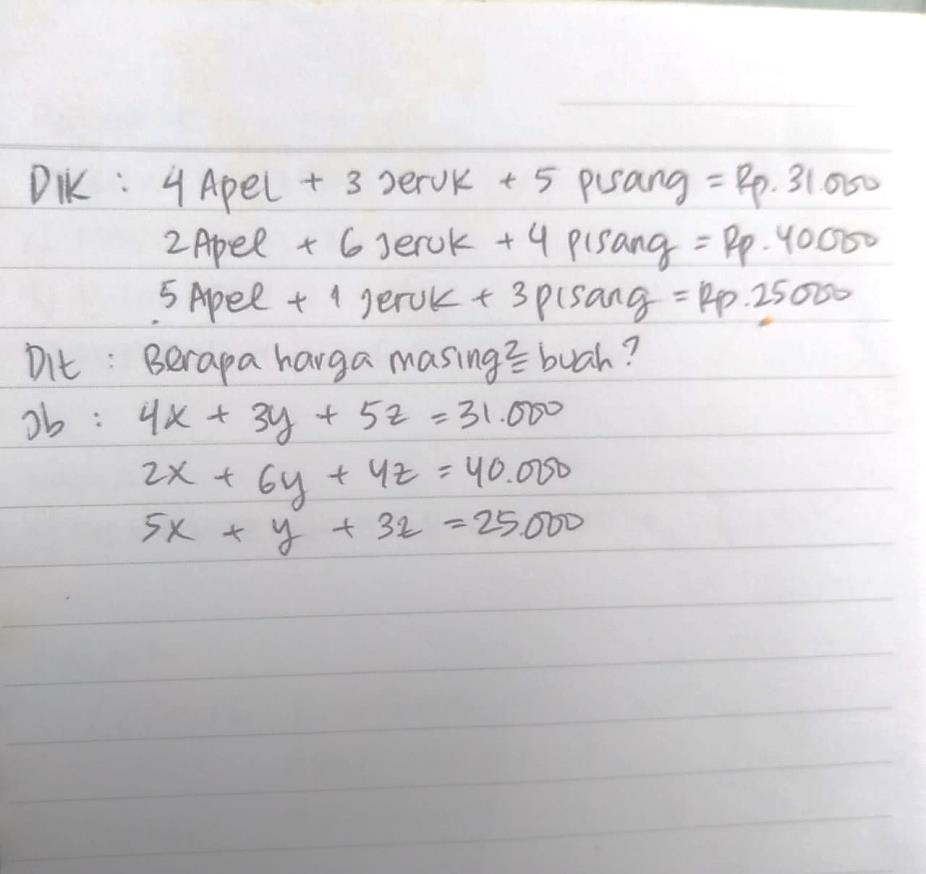 Dik : 4 Apel + 3 Jeruk + 5 pisang = Rp. 31.000
2 Apel + 6 Jeruk + 4 pisang = Rp. 40000
5 Apel + 1 jeruk + 3 pisang = Rp. 25000
Dit : Berapa harga masing2 buah?
Jb : 4x + 3y + 5z = 31.000
2x + 6y + 4z = 40.000
5x + y + 3z = 25.000